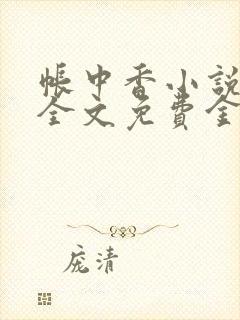 帐中香小说
全文免费全
庞清